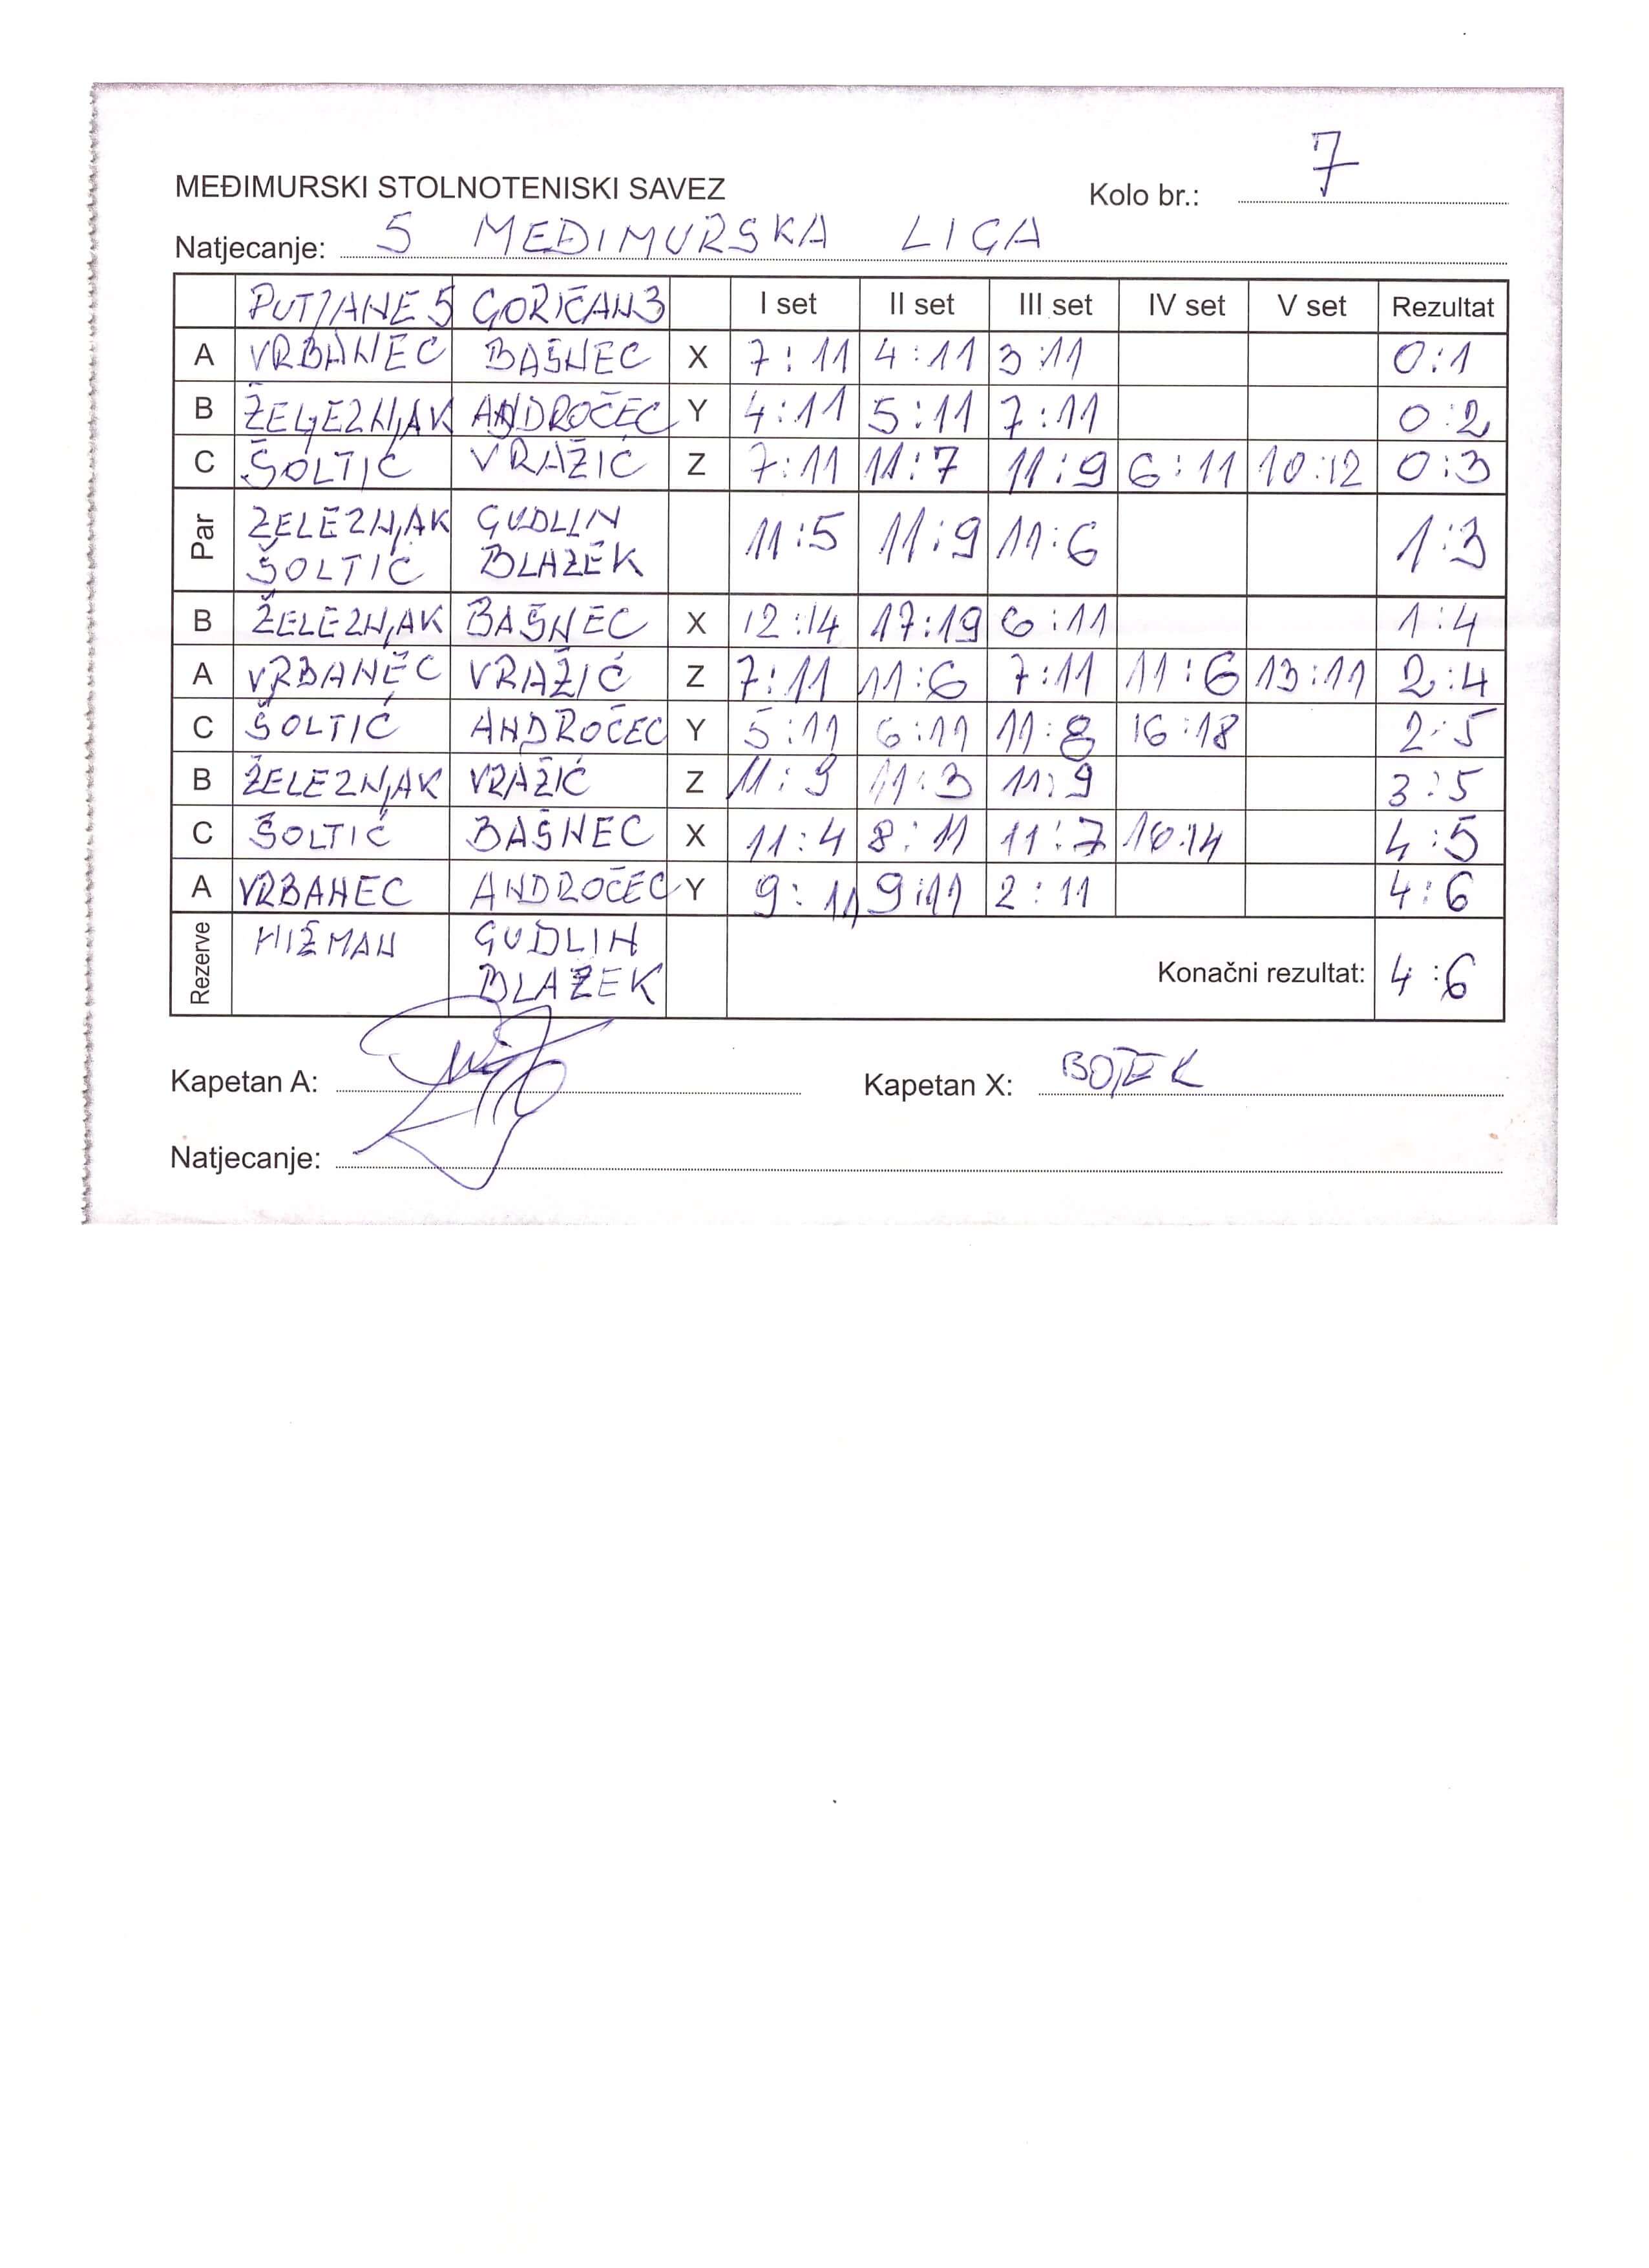 MEĐIMURSKI STOLNOTENISKI SAVEZ Kolo br.: 7
Natjecanje: 5 MEĐIMURSKA LIGA
PUTJANE 5 GORIČAN 3 I set II set III set IV set V set Rezultat
A VRBANEC BAŠNEC X 7:11 4:11 3:11 0:1
B ŽELEZNJAK ANDROČEC Y 4:11 5:11 7:11 0:2
C ŠOLTIĆ VRAŽIĆ Z 7:11 11:7 11:9 6:11 10:12 0:3
Par ŽELEZNJAK GUDLIN 11:5 11:9 11:6 1:3
ŠOLTIĆ BLAŽEK
B ŽELEZNJAK BAŠNEC X 12:14 17:19 6:11 1:4
A VRBANEC VRAŽIĆ Z 7:11 11:6 7:11 11:6 13:11 2:4
C ŠOLTIĆ ANDROČEC Y 5:11 6:11 11:8 16:18 2:5
B ŽELEZNJAK VRAŽIĆ Z 11:9 11:3 11:9 3:5
C ŠOLTIĆ BAŠNEC X 11:4 8:11 11:7 16:14 4:5
A VRBANEC ANDROČEC Y 9:11 9:11 2:11 4:6
Rezerve HIŽMAN GUDLIN Konačni rezultat: 4:6
BLAŽEK
Kapetan A: Kapetan X:
Natjecanje: